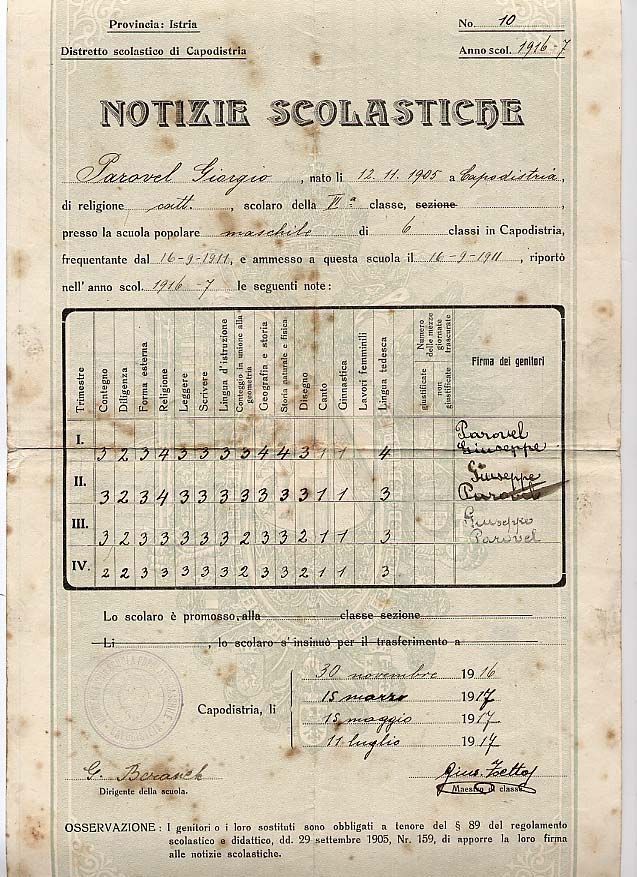 Provincia: Istria
No. 10
Distretto scolastico di Capodistria
Anno scol. 1916-7
NOTIZIE SCOLASTICHE
Parovel Giorgio, nato li 12. 11. 1905 a Capodistria,
di religione catt., scolaro della VIª classe, sezione
presso la scuola popolare maschile di 6 classi in Capodistria,
frequentante dal 16-9-1911, e ammesso a questa scuola il 16-9-1911, riportò
nell'anno scol. 1916-7 le seguenti note:
Trimestre Contegno Diligenza Forma esterna Religione Leggere Scrivere Lingua d'istruzione Conteggio in unione alla geometria Geografia e storia Storia naturale e fisica Disegno Canto Ginnastica Lavori femminili Lingua tedesca Numero delle mezze giornate trascurate giustificate non giustificate Firma dei genitori
I. 3 2 3 4 3 3 3 3 4 4 3 1 1 4 Parovel Giuseppe
II. 3 2 3 4 3 3 3 3 3 3 3 1 1 3 Giuseppe Parovel
III. 3 2 3 3 3 3 3 2 3 3 2 1 1 3 Giuseppe Parovel
IV. 2 2 3 3 3 3 3 2 3 3 2 1 1 3
Lo scolaro è promosso, alla classe sezione
Li , lo scolaro s'insinuò per il trasferimento a
30 novembre 1916
15 marzo 1917
Capodistria, li
15 maggio 1917
11 luglio 1917
G.
Dirigente della scuola.
Maestro di classe
OSSERVAZIONE: I genitori o i loro sostituti sono obbligati a tenore del § 89 del regolamento
scolastico e didattico, dd. 29 settembre 1905, Nr. 159, di apporre la loro firma
alle notizie scolastiche.